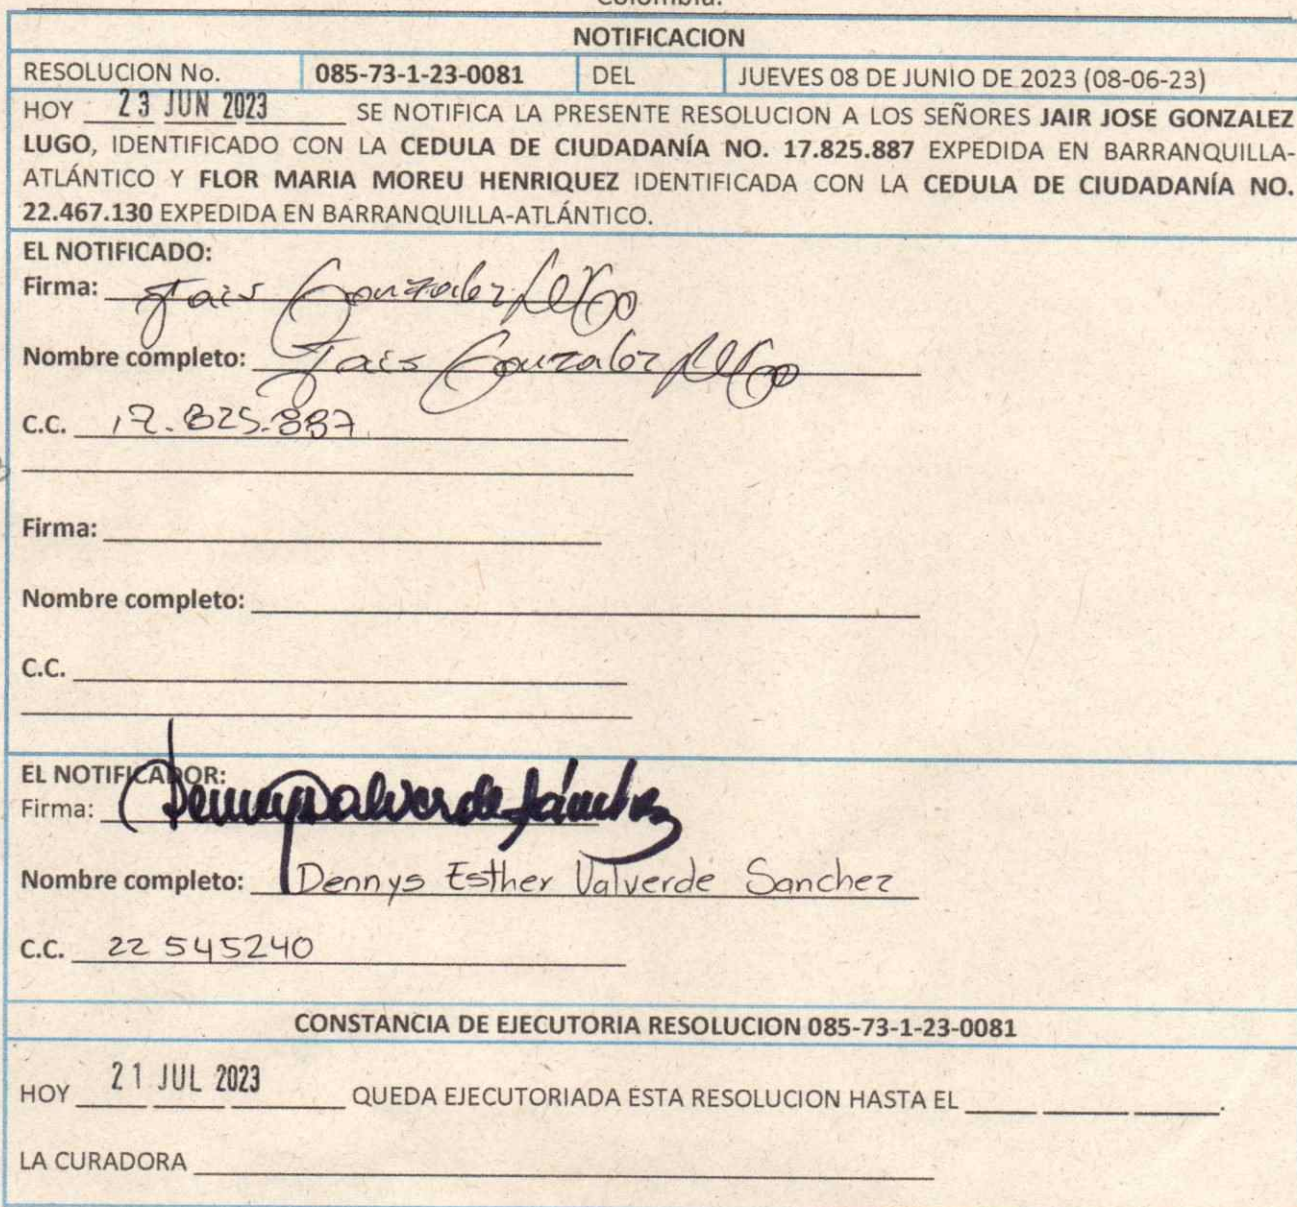 Colombia.
NOTIFICACION
RESOLUCION No. 085-73-1-23-0081 DEL JUEVES 08 DE JUNIO DE 2023 (08-06-23)
HOY 23 JUN 2023 SE NOTIFICA LA PRESENTE RESOLUCION A LOS SEÑORES JAIR JOSE GONZALEZ
LUGO, IDENTIFICADO CON LA CEDULA DE CIUDADANÍA NO. 17.825.887 EXPEDIDA EN BARRANQUILLA-
ATLÁNTICO Y FLOR MARIA MOREU HENRIQUEZ IDENTIFICADA CON LA CEDULA DE CIUDADANÍA NO.
22.467.130 EXPEDIDA EN BARRANQUILLA-ATLÁNTICO.
EL NOTIFICADO:
Firma: Jair Gonzalez Lugo
Nombre completo: Jair Gonzalez Lugo
C.C. 17.825.887
Firma:
Nombre completo:
C.C.
EL NOTIFICADOR:
Firma: Dennys Valverde Sánchez
Nombre completo: Dennys Esther Valverde Sanchez
C.C. 22 545240
CONSTANCIA DE EJECUTORIA RESOLUCION 085-73-1-23-0081
HOY 21 JUL 2023 QUEDA EJECUTORIADA ESTA RESOLUCION HASTA EL
LA CURADORA